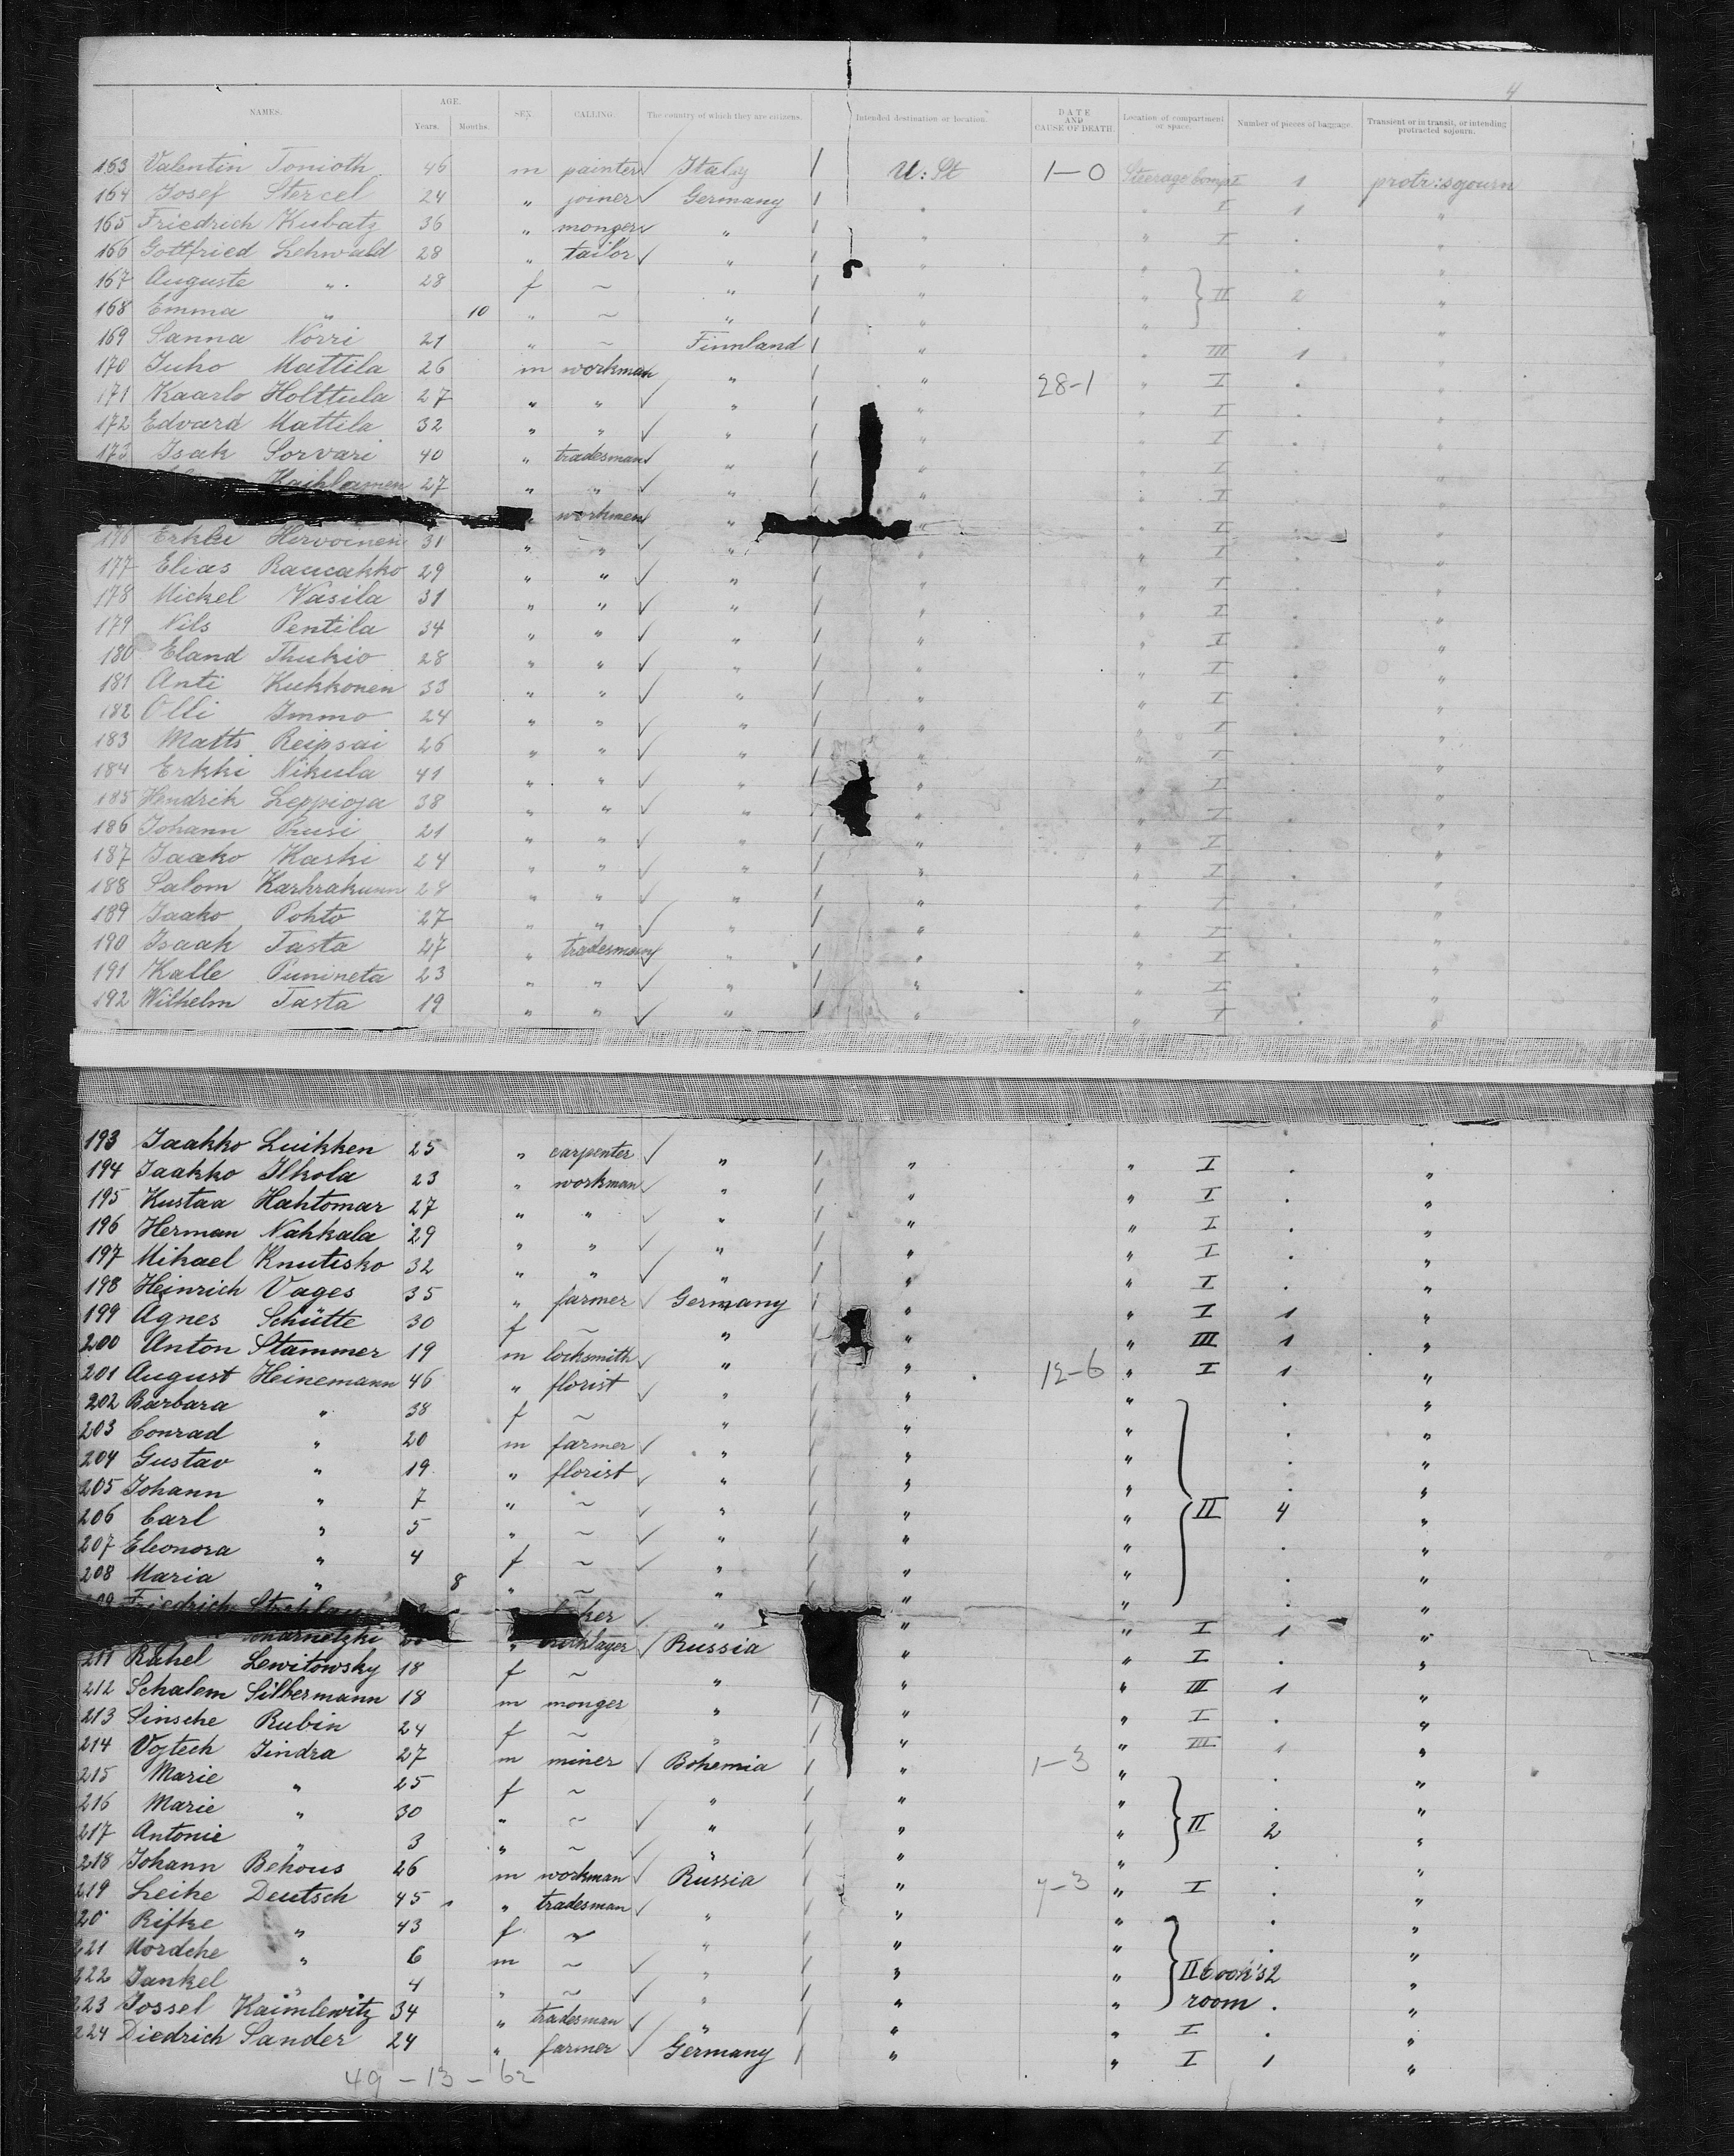 4
NAMES. AGE. Years. Months. SEX. CALLING. The country of which they are citizens. Intended destination or location. DATE AND CAUSE OF DEATH. Location of compartment or space. Number of pieces of baggage. Transient or in transit, or intending protracted sojourn.
163 Valentin Tonioth 46 m painter ✓ Italy / U: St 1-0 Steerage Comp I 1 protr: sojourn
164 Josef Stercel 24 " joiner ✓ Germany / " " I 1 "
165 Friedrich Kubatz 36 " monger ✓ " / " " I . "
166 Gottfried Lehwald 28 " tailor ✓ " / " " . "
167 Auguste " 28 f ~ " / " " II 2 "
168 Emma " 10 " ~ " / " " . "
169 Sanna Norri 21 " ~ Finnland / " " III 1 "
170 Juho Mattila 26 m workman " / " 28-1 " I . "
171 Kaarlo Holttula 27 " " ✓ " / " " I . "
172 Edvard Mattila 32 " " ✓ " / " " I . "
173 Isak Sorvari 40 " tradesman ✓ " / " " I . "
Kaihlamen 27 " " ✓ " / " " I . "
" workmen " " I . "
176 Erkki Hirvoinen 31 " " ✓ " / " " I . "
177 Elias Raucakko 29 " " ✓ " / " " I . "
178 Mickel Vasila 31 " " ✓ " / " " I . "
179 Nils Pentila 34 " " ✓ " / " " I . "
180 Eland Thukio 28 " " ✓ " / " " I . "
181 Anti Kukkonen 33 " " ✓ " / " " I . "
182 Olli Immo 24 " " ✓ " / " " I . "
183 Matts Reipsai 26 " " ✓ " / " " I . "
184 Erkki Nikula 41 " " ✓ " / " " I . "
185 Hendrik Leppioja 38 " " ✓ " / " " I . "
186 Johann Prusi 21 " " ✓ " / " " I . "
187 Jaako Kaski 24 " " ✓ " / " " I . "
188 Salom Karhrakunn 28 " " ✓ " / " " I . "
189 Jaako Pohto 27 " " ✓ " / " " I . "
190 Isaak Tasta 27 " tradesman ✓ " / " " I . "
191 Kalle Punineta 23 " " ✓ " / " " I . "
192 Wilhelm Tasta 19 " " ✓ " / " " I . "
193 Jaakko Luikken 25 " carpenter ✓ " / " " I . "
194 Jaakko Ilkola 23 " workman ✓ " / " " I . "
195 Kustaa Hahtomar 27 " " ✓ " / " " I . "
196 Herman Nahkala 29 " " ✓ " / " " I . "
197 Mikael Knutisko 32 " " ✓ " / " " I . "
198 Heinrich Vages 35 " farmer ✓ Germany / " " I 1 "
199 Agnes Schütte 30 f ~ " / " " III 1 "
200 Anton Stammer 19 m locksmith ✓ " / " 12-6 " I 1 "
201 August Heinemann 46 " florist ✓ " / " " . "
202 Barbara " 38 f ~ " / " " . "
203 Conrad " 20 m farmer ✓ " / " " . "
204 Gustav " 19 " florist ✓ " / " " . "
205 Johann " 7 " ~ ✓ " / " " II 4 "
206 Carl " 5 " ~ ✓ " / " " . "
207 Eleonora " 4 f ~ ✓ " / " " . "
208 Maria " 8 " ~ " / " " . "
209 Friedrich ✓ " " " I 1 "
✓ Russia " " I . "
211 Rahel Lewitowsky 18 f ~ " " " III 1 "
212 Schalem Silbermann 18 m monger " / " " I . "
213 Sinsche Rubin 24 f ~ " / " " III 1 "
214 Vojtech Jindra 27 m miner ✓ Bohemia / " 1-3 " . "
215 Marie " 25 f ~ " / " " . "
216 Marie " 30 " ~ ✓ " / " " II 2 "
217 Antonie " 3 " ~ ✓ " / " " . "
218 Johann Behous 26 m workman ✓ Russia / " 7-3 " I . "
219 Leike Deutsch 45 " tradesman ✓ " / " " . "
20 Rifke " 43 f ~ " / " " . "
221 Mordche " 6 m ~ ✓ " / " " II Cook's 2 "
222 Jankel " 4 " ~ ✓ " / " " room . "
223 Jossel Kaimlewitz 34 " tradesman ✓ " / " " I . "
224 Diedrich Sander 24 " farmer ✓ Germany / " " I 1 "
49 - 13 - 62